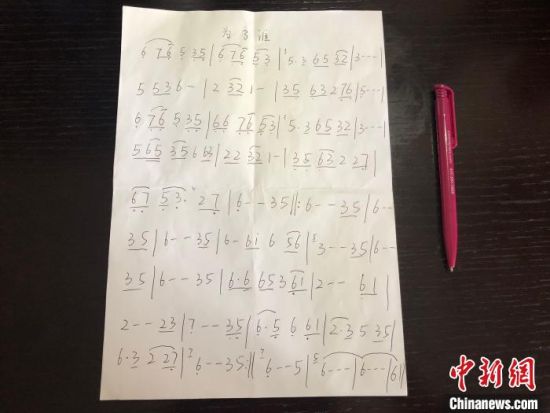 为了谁
6 76 5 35 | 676 53 | 5·3 65 32 | 3--- |
5 5 3 6 - | 2 32 1 - | 35 63 2 76 | 5---
6 76 5 35 | 66 76 53 | 5·3 65 32 | 3--- |
565 35 6 63 | 22 32 1 - | 35 63 2 27 |
67 53· 27 | 6 -- 35 ‖: 6 -- 35 | 6 --
35 | 6 -- 35 | 6 - 61 6 56 | 3 -- 35 | 6 --
35 | 6 -- 35 | 6·6 65 3 61 | 2 -- 61 |
2 -- 23 | 7 -- 35 | 6·5 6 61 | 2·3 5 35 |
6·3 2 27 | 6 -- 35 :‖ 6 -- 5 | 6 --- | 6 --- | 6 ‖
中新網
Chinanews.com